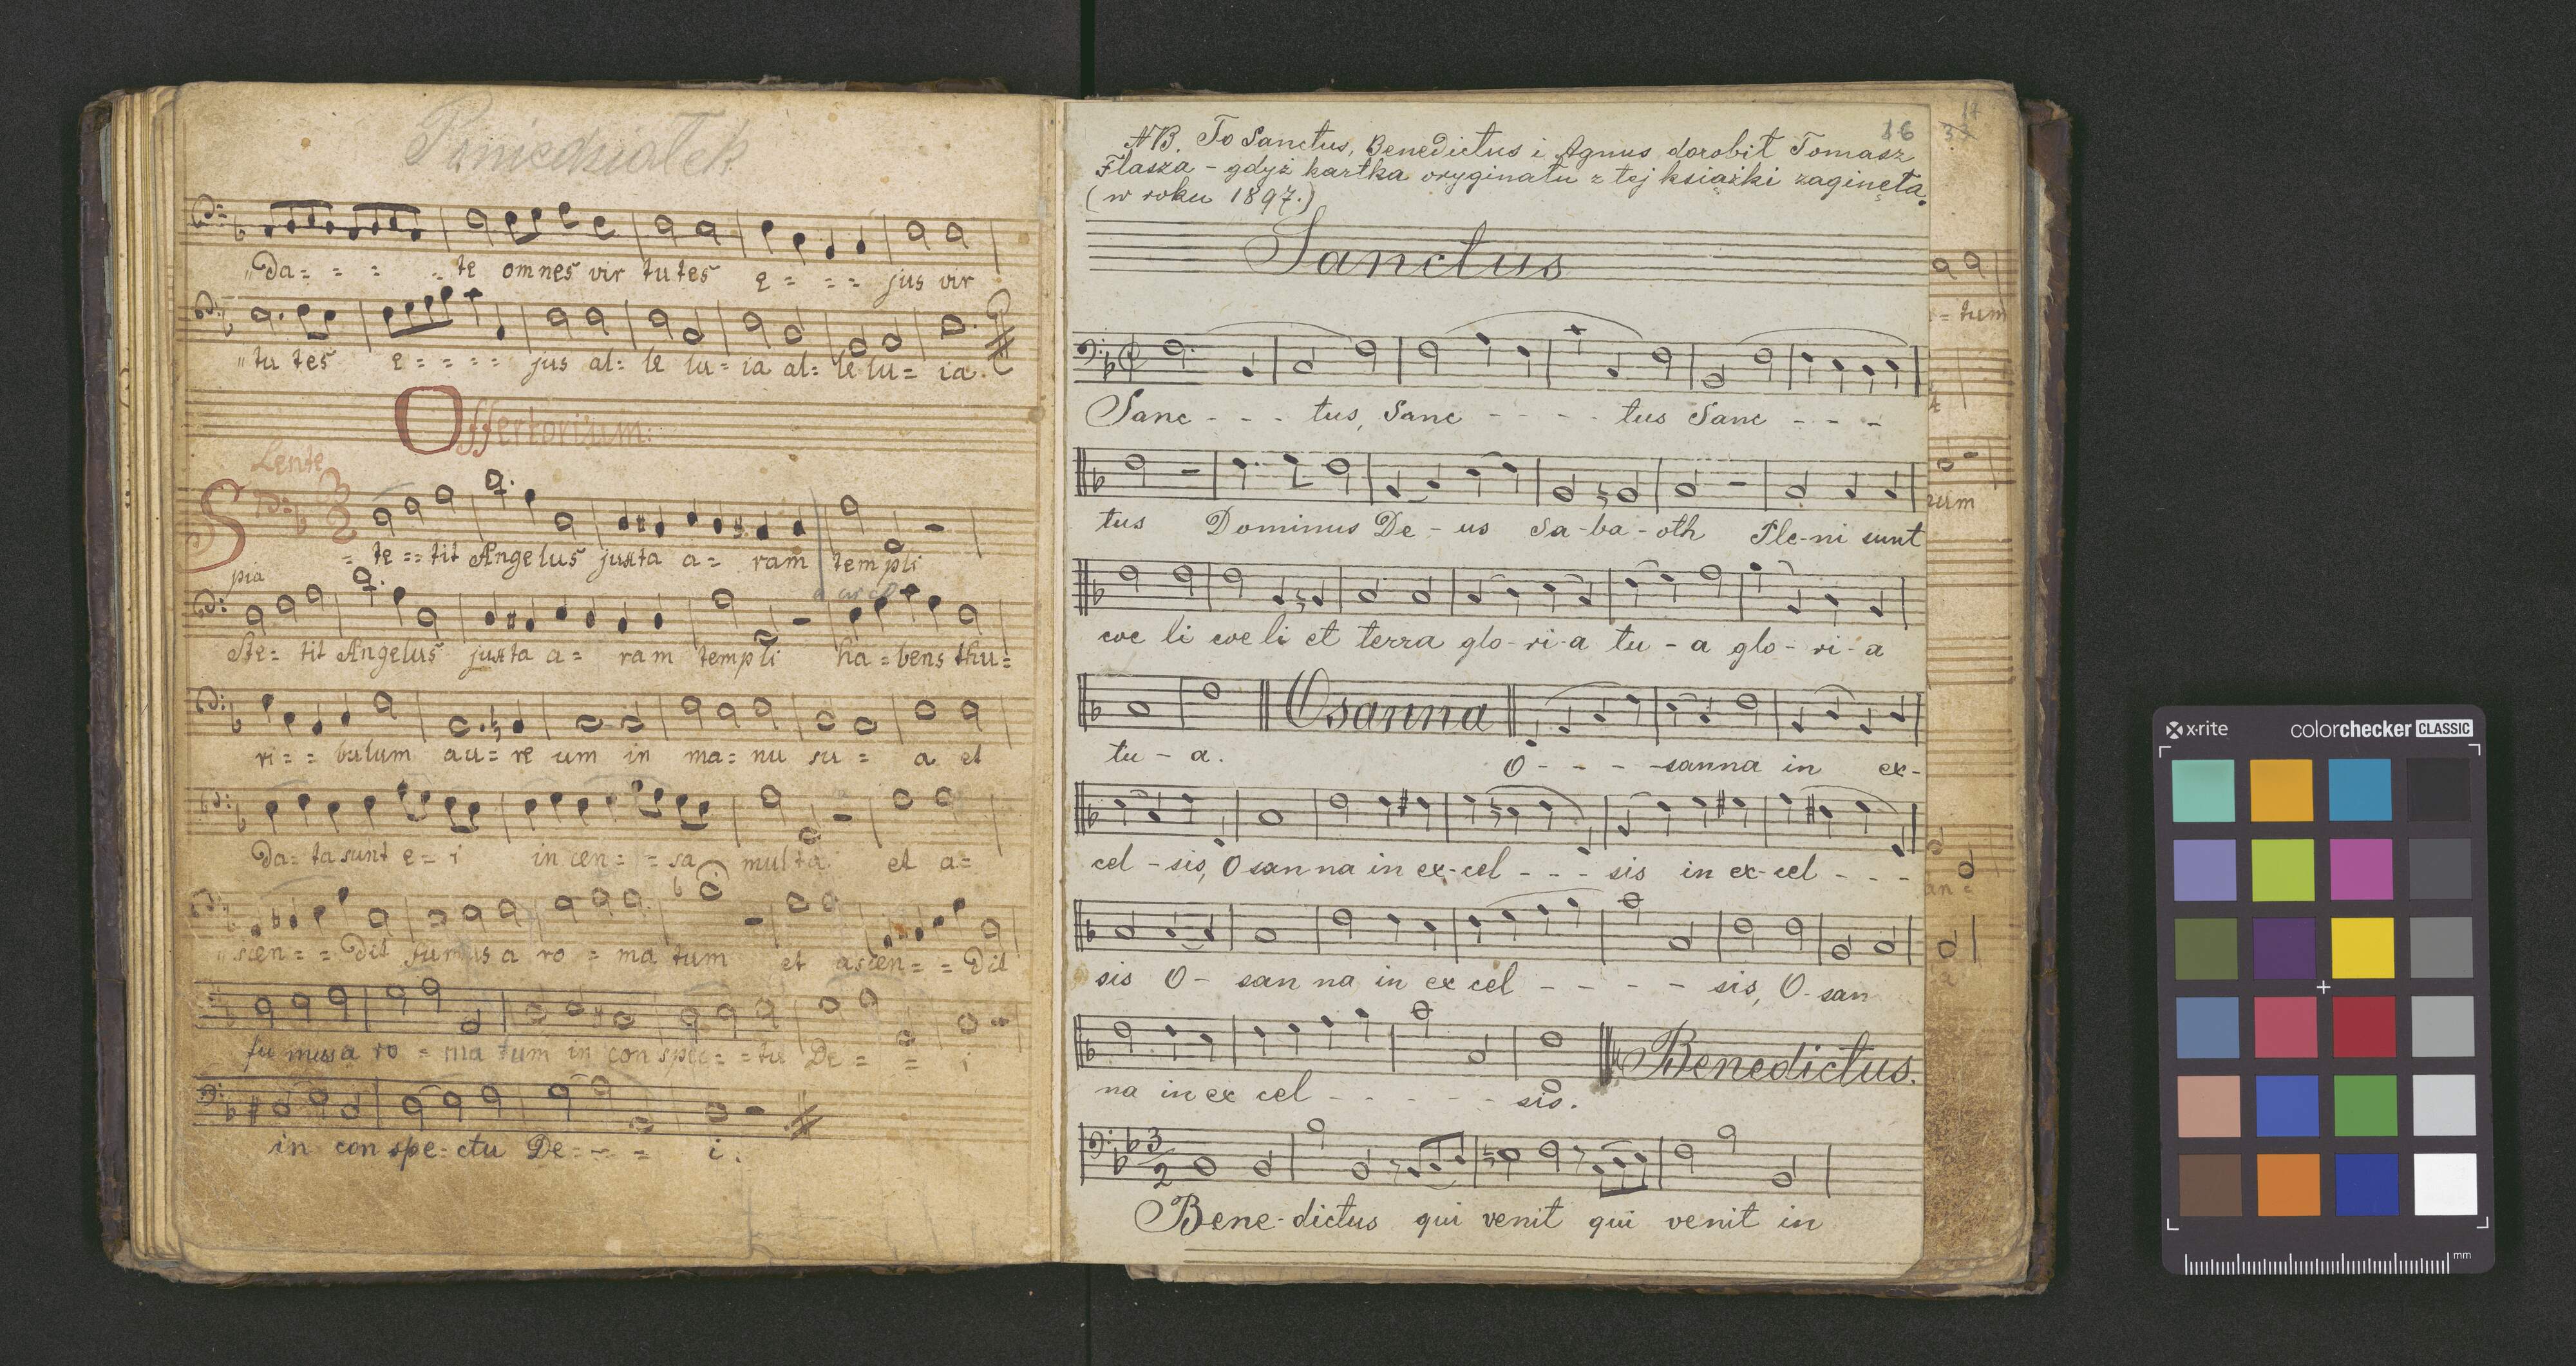 Poniedziałek
"Da= = = = te omnes vir tutes e = = = jus vir
"tu tes e = = = = jus al= le lu= ia al= le lu= ia.
Offertorium:
Lente
S= te == tit Angelus juxta a= ram templi
pia
Ste= tit Angelus juxta a= ram templi ha = bens thu=
ri= = bulum au= re um in ma= nu su = a et
Da= ta sunt e= i in cen= = sa multa et a=
"scen= = Dit fumus a ro = ma tum et ascen= = Dit
fu mus a ro = ma tum in con spec= = tu De = = i
in con spe= ctu De= -- = i.
16
17
NB. To Sanctus, Benedictus i Agnus dorobił Tomasz
Flasza - gdyż kartka oryginału z tej książki zaginęła.
(w roku 1897.)
Sanctus
Sanc - - - tus, Sanc - - - - tus Sanc - - -
tus Dominus De - us Sa-ba-oth Ple-ni sunt
coe li coe li et terra glo-ri-a tu - a glo-ri-a
Osanna
tu - a. O - - - -sanna in ex-
cel - sis, O san na in ex-cel - - - sis in ex-cel - - -
sis O- san na in ex cel - - - - sis, O-san
na in ex cel - - - - - sis.
Benedictus.
3/2
Bene-dictus qui venit qui venit in
= tum
rum
x·rite colorchecker CLASSIC
mm